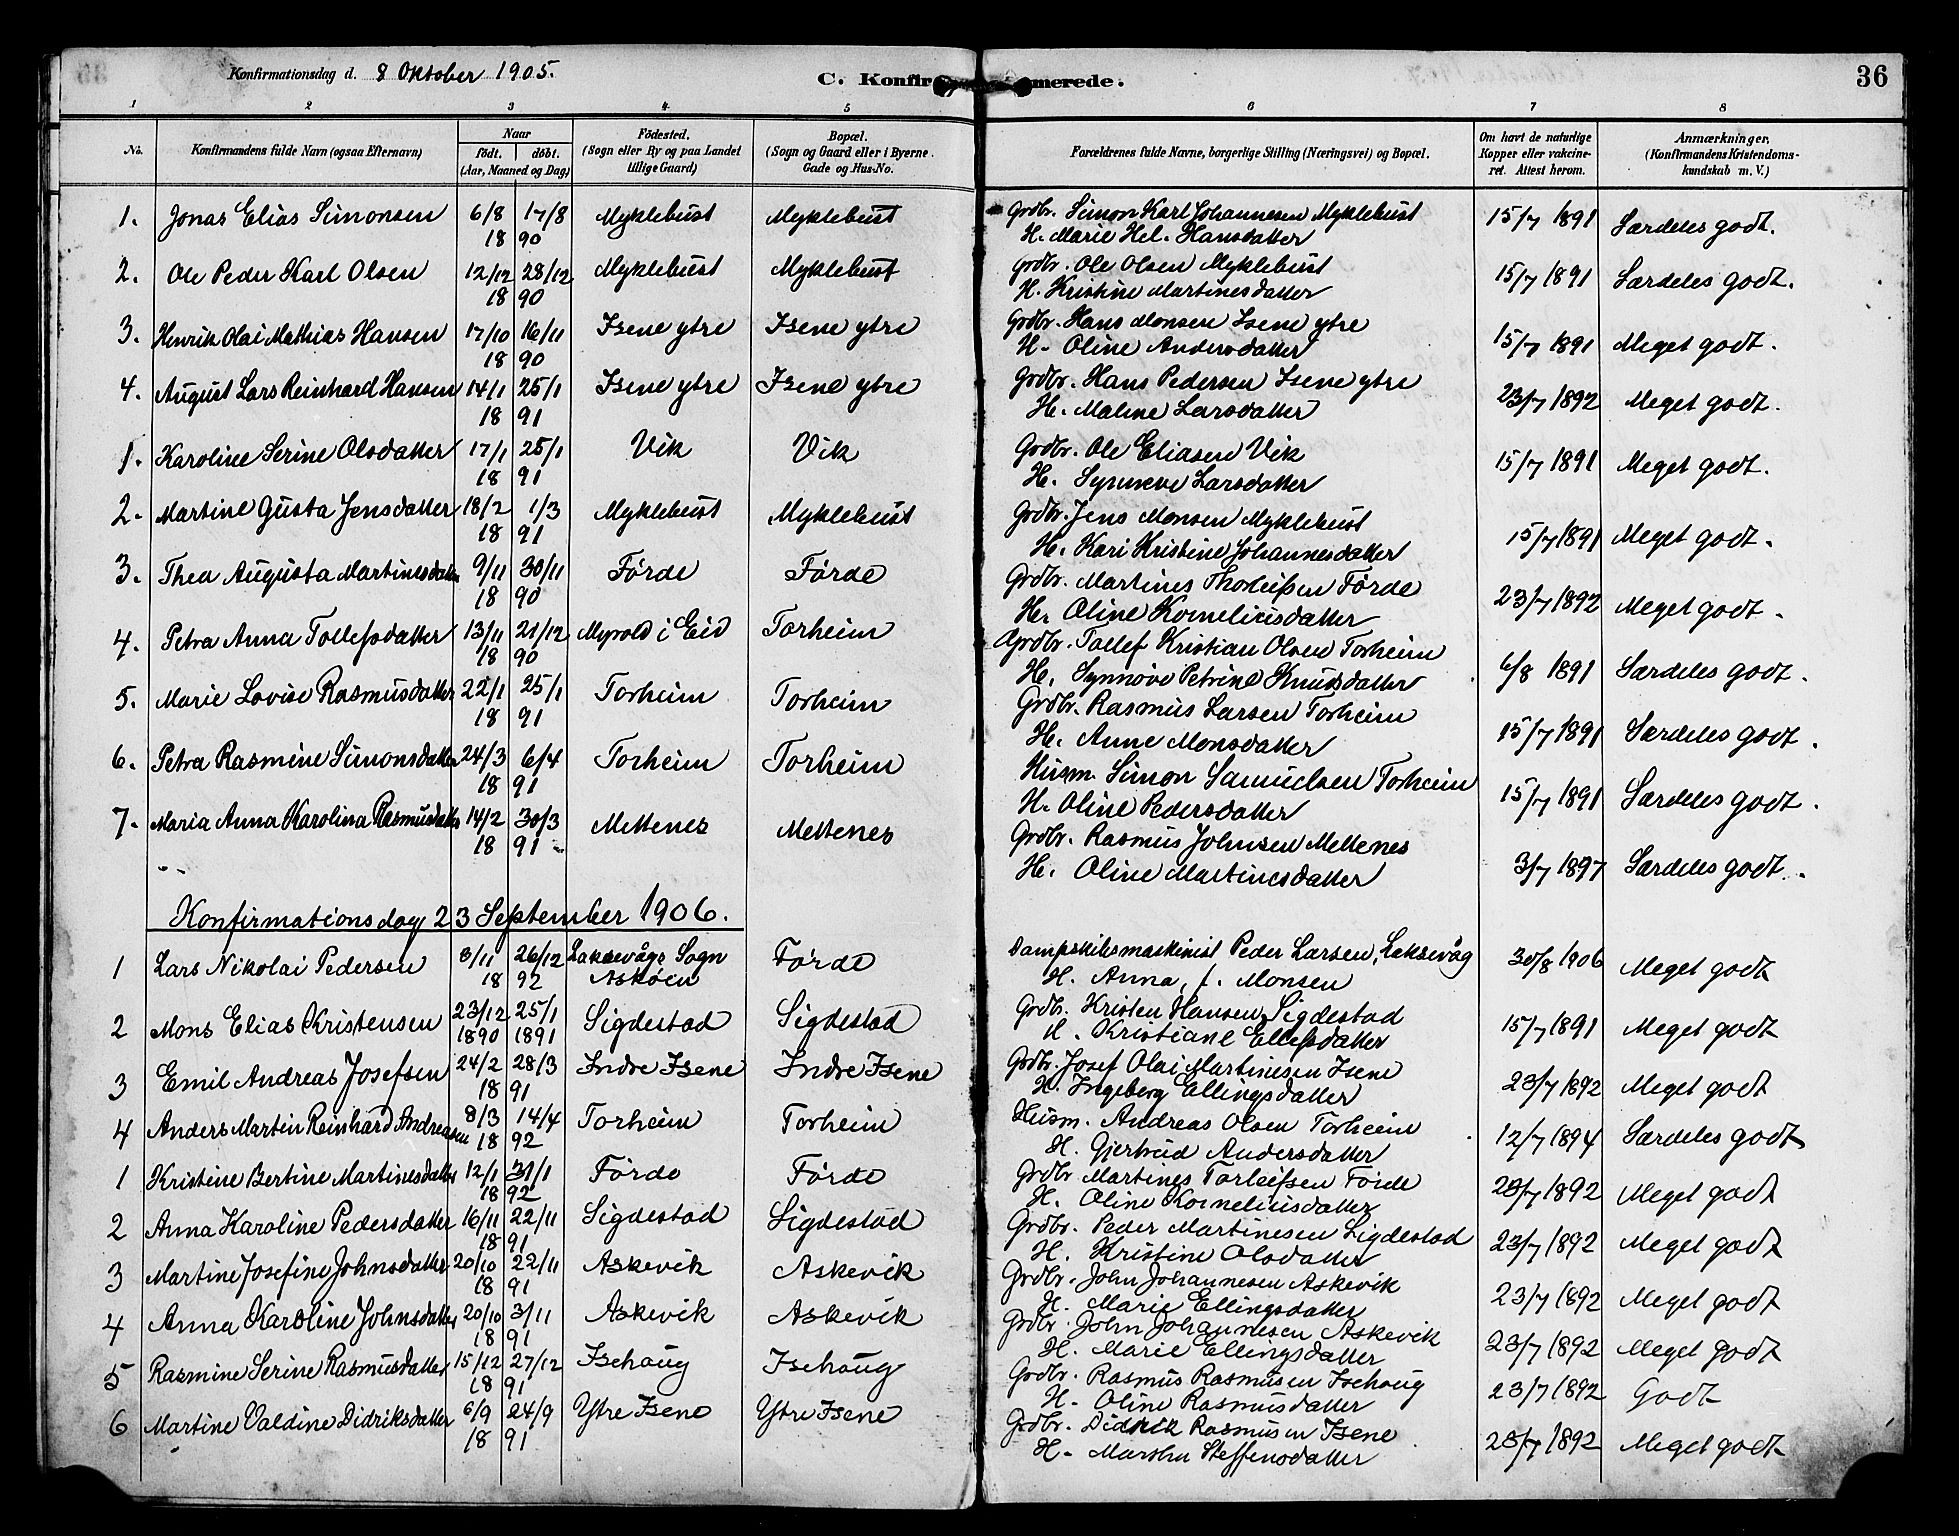 Konfirmationsdag d. 8 Oktober 1905.
C. Konfirmerede.
36
1 2 3 4 5 6 7 8
No. Konfirmandens fulde Navn (ogsaa Efternavn) Naar født. døbt. (Aar, Maaned og Dag) Fødested. (Sogn eller By og paa Landet tillige Gaard) Bopæl. (Sogn og Gaard eller i Byerne Gade og Hus-No. Forældrenes fulde Navne, borgerlige Stilling (Næringsvei) og Bopæl. Om havt de naturlige Kopper eller vakcineret. Attest herom. Anmærkninger, (Konfirmandens Kristendomskundskab m. V.)
1. Jonas Elias Simonsen 6/8 17/8 Myklebust Myklebust Grdbr. Simon Karl Johannesen Myklebust 15/7 1891 Særdeles godt.
18 90 H. Marie Hel. Hansdatter
2. Ole Peder Karl Olsen 12/12 28/12 Myklebust Myklebust Grdbr. Ole Olsen Myklebust 15/7 1891 Særdeles godt.
18 90 H. Kristine Martinesdatter
3. Henrik Olai Mathias Hansen 17/10 16/11 Isene ytre Isene ytre Grdbr. Hans Monsen Isene ytre 15/7 1891 Meget godt.
18 90 H. Oline Andersdatter
4. August Lars Reinhard Hansen 14/1 25/1 Isene ytre Isene ytre Grdbr. Hans Pedersen Isene ytre 23/7 1892 Meget godt.
18 91 H. Maline Larsdatter
1. Karoline Serine Olsdatter 17/1 25/1 Vik Vik Grdbr. Ole Eliasen Vik 15/7 1891 Meget godt.
18 91 H. Synneve Larsdatter
2. Martine Gusta Jensdatter 18/2 1/3 Myklebust Myklebust Grdbr. Jens Monsen Myklebust 15/7 1891 Meget godt.
18 91 H. Kari Kristine Johannesdatter
3. Thea Augusta Martinesdatter 9/11 30/11 Førde Førde Grdbr. Martines Thoreifsen Førde 23/7 1892 Meget godt.
18 90 H. Oline Korneliusdatter
4. Petra Anna Tollefsdatter 13/11 21/12 Myrold i Eid Torheim Grdbr. Tollef Kristian Olsen Torheim 6/8 1891 Særdeles godt.
18 90 H. Synnøve Petrine Knudsdatter
5. Marie Lovise Rasmusdatter 22/1 25/1 Torheim Torheim Grdbr. Rasmus Larsen Torheim 15/7 1891 Særdeles godt.
18 91 H. Anne Monsdatter
6. Petra Rasmine Simonsdatter 24/3 6/4 Torheim Torheim Husm. Simon Samuelsen Torheim 15/7 1891 Særdeles godt.
18 91 H. Oline Pedersdatter
7. Maria Anna Karolina Rasmusdatter 14/2 30/3 Mettenes Mettenes Grdbr. Rasmus Johnsen Mettenes 3/7 1897 Særdeles godt.
18 91 H. Oline Martinesdatter
Konfirmationsdag 23 September 1906.
1 Lars Nikolai Pedersen 3/11 26/12 Laksevågs Sogn Førde Dampskibsmaskinist Peder Larsen, Laksevåg 30/8 1906 Meget godt
18 92 Askøen H. Anna, f. Monsen
2 Mons Elias Kristensen 23/12 25/1 Sigdestad Sigdestad Grdbr. Kristen Hansen Sigdestad 15/7 1891 Meget godt
1890 1891 H. Kristiane Ellefsdatter
3 Emil Andreas Josefsen 24/2 28/3 Indre Isene Indre Isene Grdbr. Josef Olai Martinesen Isene 23/7 1892 Meget godt
18 91 H. Ingeborg Ellingsdatter
4 Anders Martin Reinhard Andreasen 8/3 14/4 Torheim Torheim Husm. Andreas Olsen Torheim 12/7 1894 Særdeles godt
18 92 H. Gjertrud Andersdatter
1 Kristine Bertine Martinesdatter 12/1 31/1 Førde Førde Grdbr. Martines Torleifsen Førde 23/7 1892 Meget godt
18 92 H. Oline Korneliusdatter
2 Anna Karoline Pedersdatter 16/11 22/11 Sigdestad Sigdestad Grdbr. Peder Martinesen Sigdestad 23/7 1892 Meget godt
18 91 H. Kristine Olsdatter
3 Martine Josefine Johnsdatter 20/10 22/11 Askevik Askevik Grdbr. John Johannesen Askevik 23/7 1892 Meget godt
18 91 H. Marie Ellingsdatter
4 Anna Karoline Johnsdatter 20/10 3/11 Askevik Askevik Grdbr. John Johannesen Askevik 23/7 1892 Meget godt
18 91 H. Marie Ellingsdatter
5 Rasmine Serine Rasmusdatter 15/12 27/12 Isehaug Isehaug Grdbr. Rasmus Rasmusen Isehaug 23/7 1892 Godt
18 91 H. Oline Rasmusdatter
6 Martine Valdine Didriksdatter 6/9 24/9 Ytre Isene Ytre Isene Grdbr. Didrik Rasmusen Isene 23/7 1892 Meget godt
18 91 H. Steffensdatter